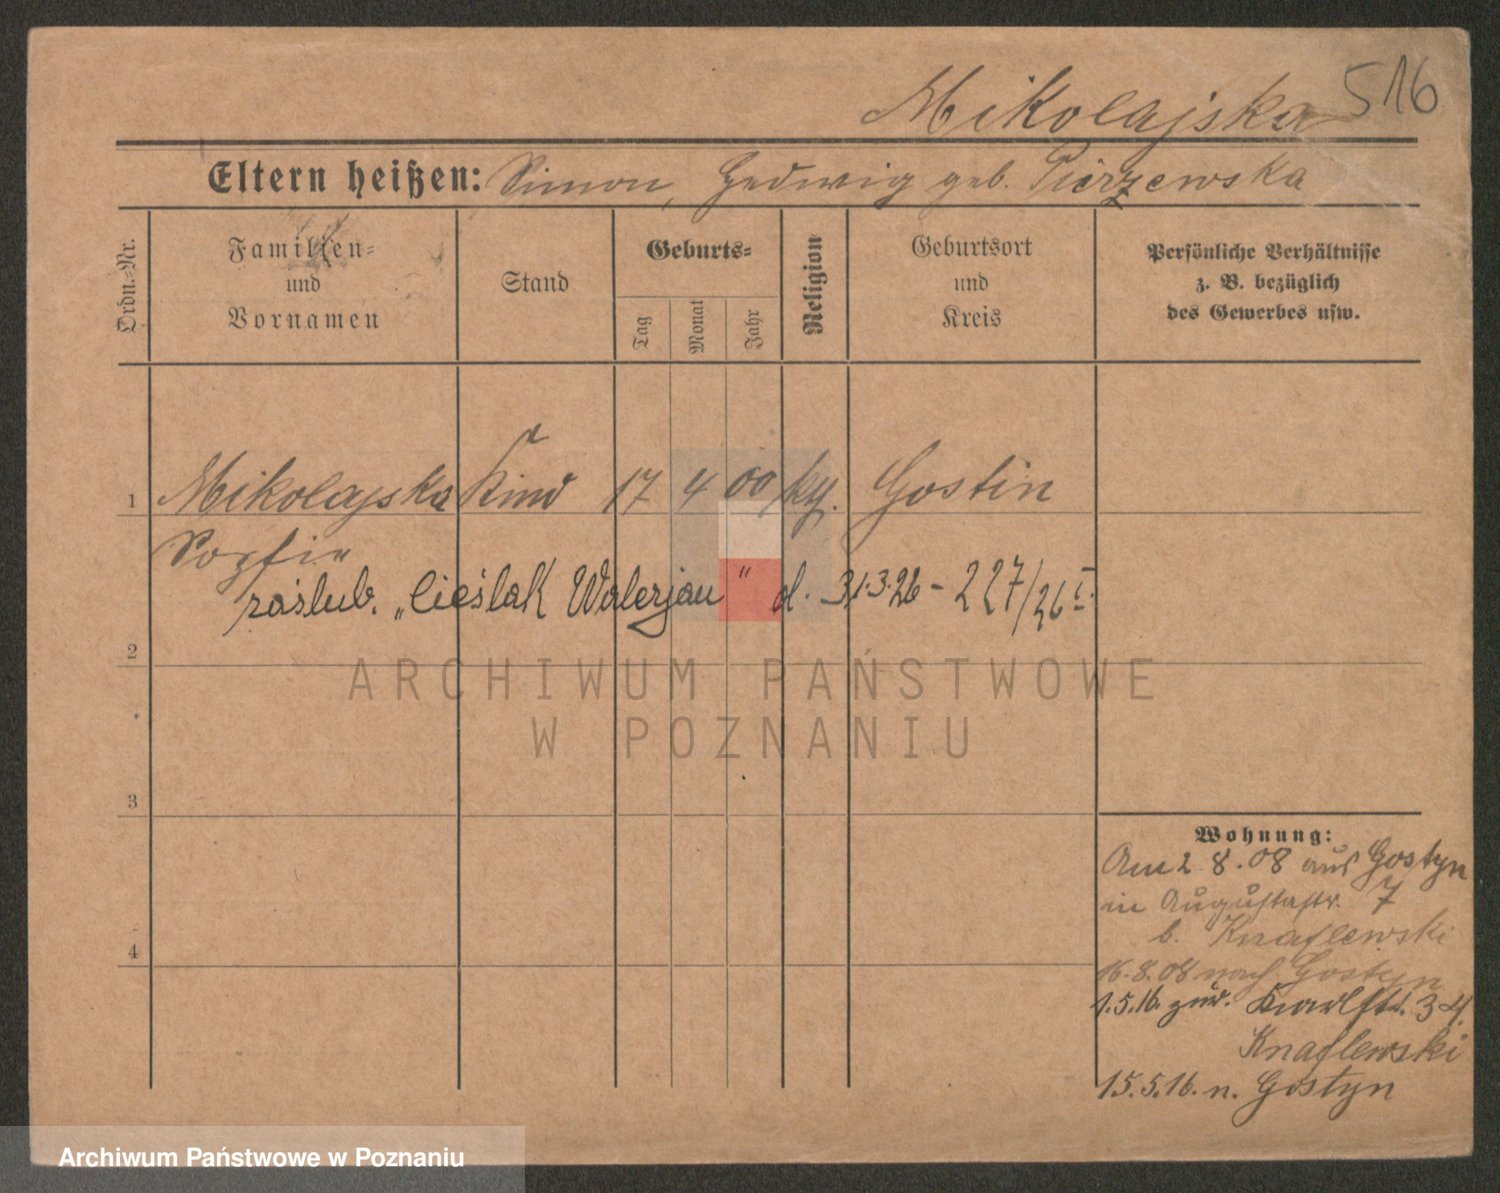 Mikolajska 516
Eltern heißen: Simon, Hedwig geb. Pierzewska
Ordn.-Nr.
Familien-
und
Vornamen
Stand
Geburts-
Tag
Monat
Jahr
Religion
Geburtsort
und
Kreis
Persönliche Verhältnisse
z. B. bezüglich
des Gewerbes usw.
1 Mikolajska Kind 17 4 00 kth. Gostin
Sophie
zaślub. „Cieślak Walerjan" d. 31.3.26 - 227/26 I.
2
ARCHIWUM PAŃSTWOWE
W POZNANIU
3
Wohnung:
Am 2 8.08 aus Gostyn
in Augustastr. 7
b. Knaflewski
4
16.8.08 nach Gostyn
1.5.16. zur. Karlstr. 34.
Knaflewski
15.5.16. n. Gostyn
Archiwum Państwowe w Poznaniu